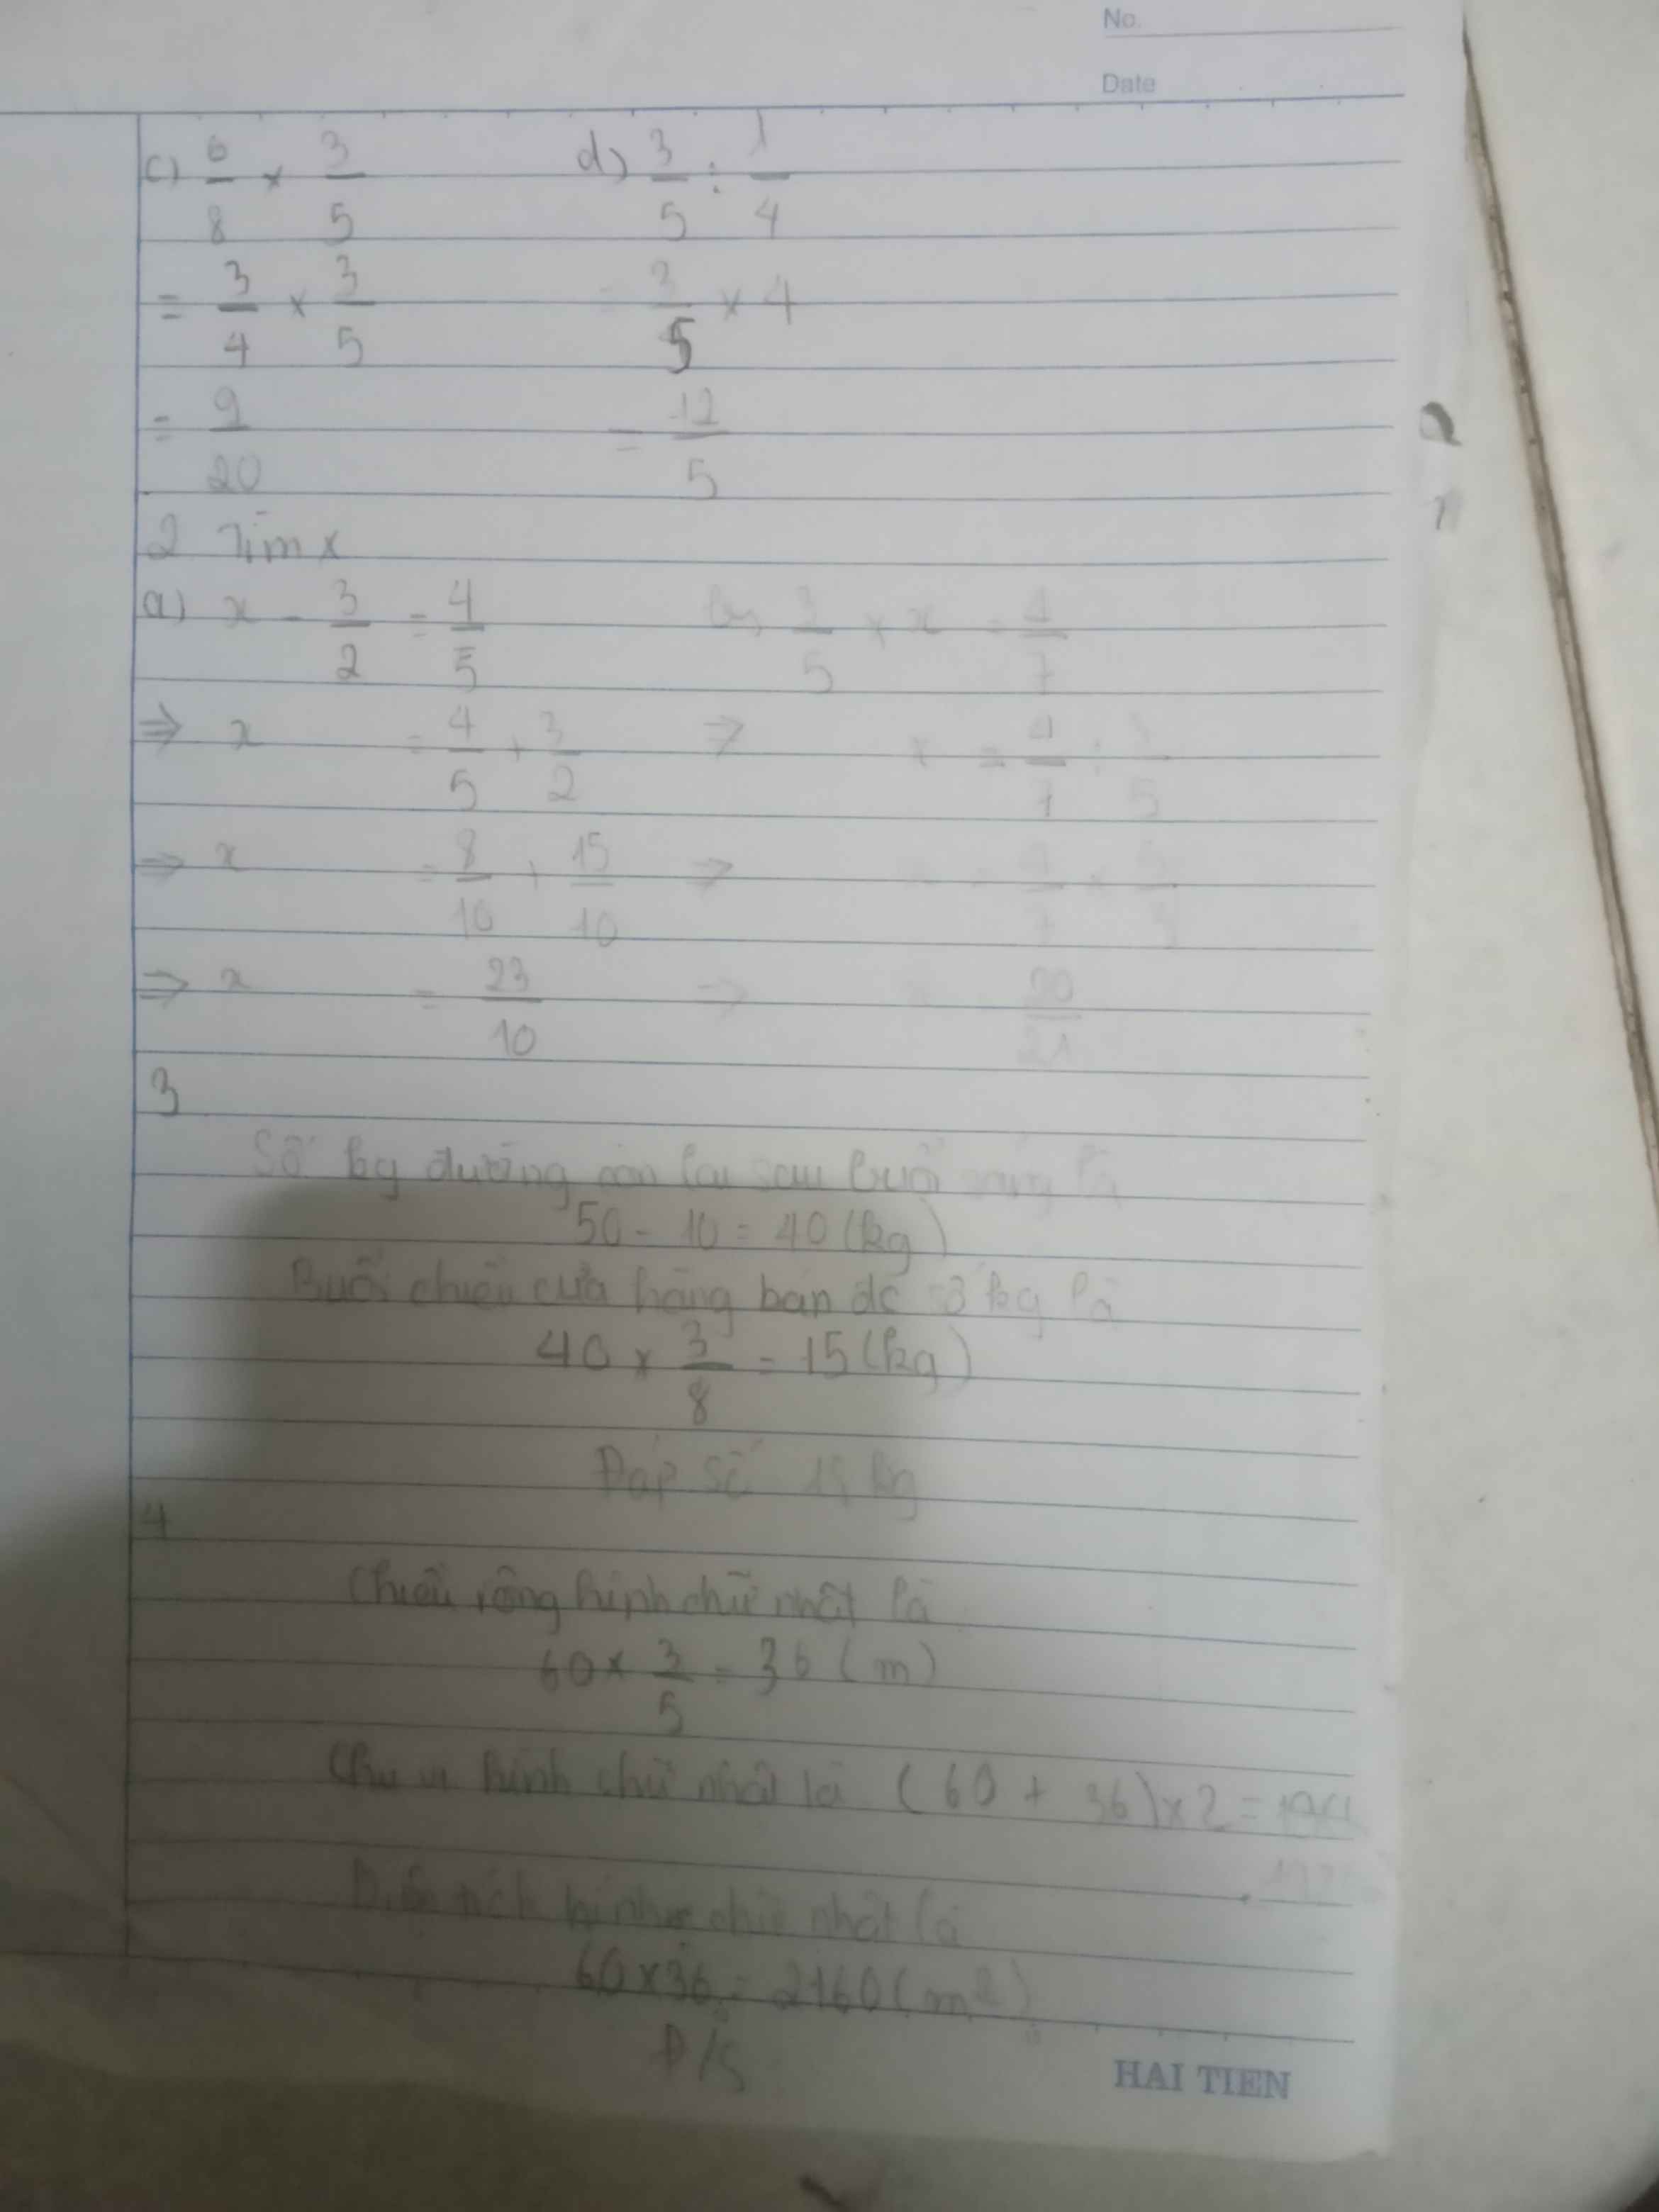 No.
Date
c) 6/8 × 3/5 d) 3/5 : 1/4
= 3/4 × 3/5 = 3/5 × 4
= 9/20 = 12/5
2 Tìm x
a) x - 3/2 = 4/5 b) 3/5 × x = 4/7
⇒ x = 4/5 + 3/2 ⇒ x = 4/7 : 3/5
⇒ x = 8/10 + 15/10 ⇒ x = 4/7 × 5/3
⇒ x = 23/10 ⇒ x 20/21
3
Số kg đường còn lại sau buổi sáng là
50 - 10 = 40 (kg)
Buổi chiều cửa hàng bán đc số kg là
40 × 3/8 = 15 (kg)
Đáp số 15 kg
4
Chiều rộng hình chữ nhật là
60 × 3/5 = 36 (m)
Chu vi hình chữ nhật là (60 + 36) × 2 =
Diện tích hình chữ nhật là
60 × 36 = 2160 (m²)
Đ/S
HAI TIEN